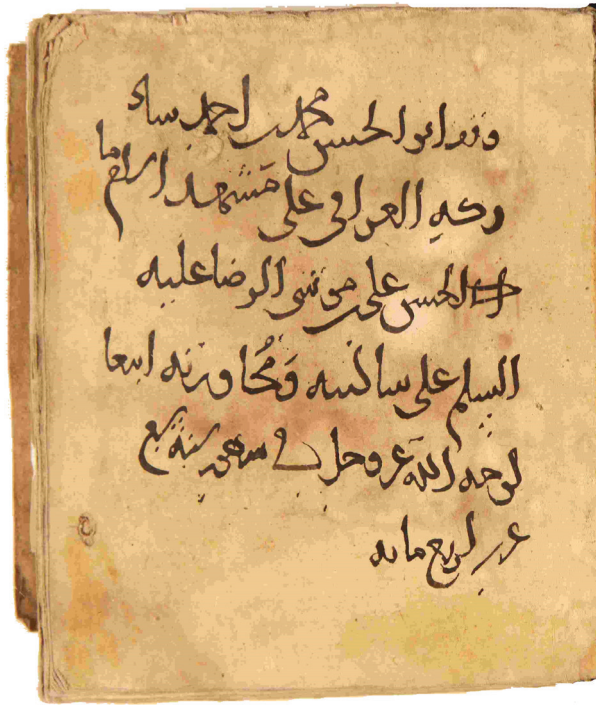 وقف ابو الحسن محمد بن احمد بن
العراقي على مشهد الامام
ابو الحسن علي بن موسى الرضا عليه
السلم على ساكنيه ومجاوريه ابتغا
لوجه الله عز وجل في سنة
اربع مايه